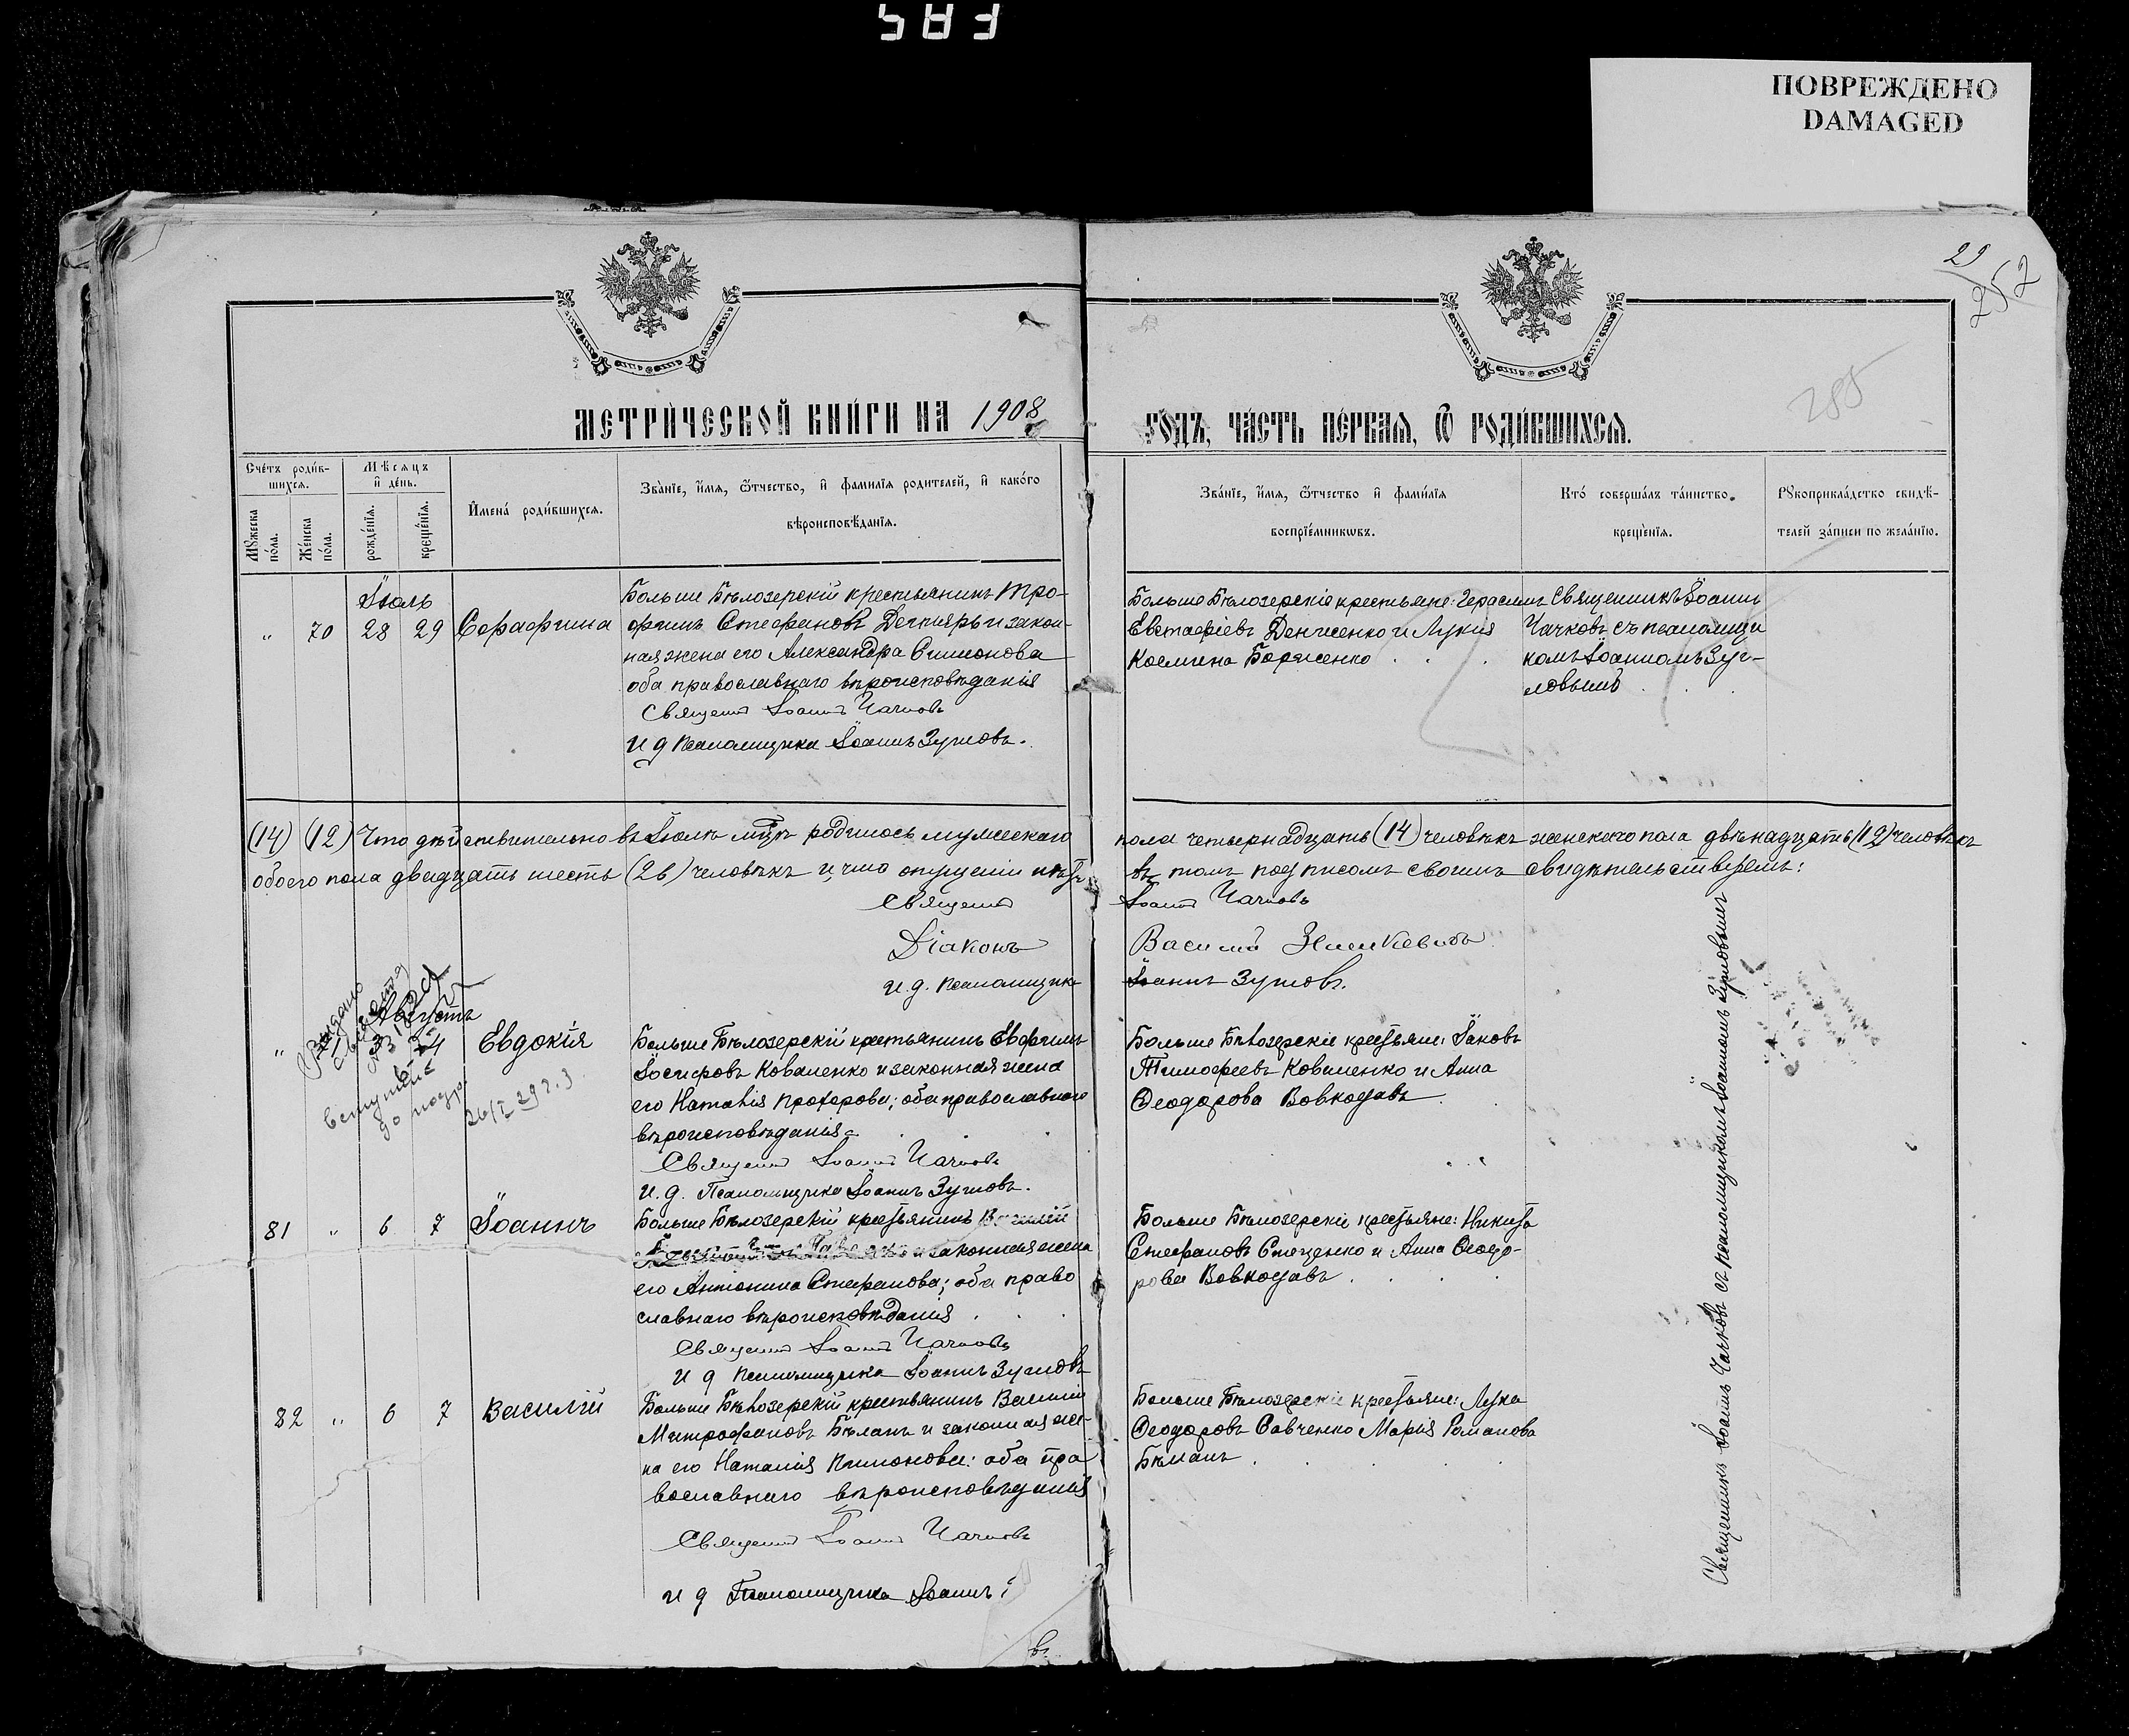 ПОВРЕЖДЕНО
DAMAGED
29
252
285
МЕТРИ́ЧЕСКОЙ КНИ́ГИ НА 1908
ГО́ДЪ, ЧА́СТЬ ПЕ́РВАЯ, Ѽ РОДИ́ВШИХСЯ.
Сче́тъ роди́в-
шихся.
Мѣ́сяцъ
и҆ де́нь.
Мꙋ́жеска
по́ла.
Же́нска
по́ла.
рожде́нїя.
креще́нїя.
И҆мена́ роди́вшихся.
Зва́нїе, и҆́мя, ѻ҆́тчество, и҆ фами́лїя родителей, и҆ како́го
вѣроисповѣ́данїя.
Зва́нїе, и҆́мя, ѻ҆́тчество и҆ фами́лїя
воспрїе́мникѡвъ.
Кто́ соверша́лъ та́инство
креще́нїя.
Рꙋкоприкла́дство свидѣ́-
телей за́писи по жела́нїю.
Іюль
„ 70 28 29 Серафима
Больше Бѣлозерскій крестьянинъ Тро-
фимъ Стефановъ Дегтярь и закон-
ная жена его Александра Симонова
оба православнаго вѣроисповѣданія
Священ Іоаннъ Чачковъ
И д псаломщика Іоаннъ Зуиловъ.
Больше Бѣлозерскіе крестьяне: Герасимъ
Евстафіевъ Денисенко и Лукія
Космина Борисенко . . .
Священникъ Іоаннъ
Чачковъ съ псаломщи
комъ Іоанномъ Зуи-
ловымъ . . .
(14) (12) Что дѣйствительно въ Іюлѣ мцѣ родилось мужескаго пола четырнадцать (14) человѣкъ женскаго пола двѣнадцать (12) человѣкъ
обоего пола двадцать шесть (26) человѣкъ и, что опущеній нѣтъ въ томъ подписомъ своимъ свидѣтельствуемъ:
Священ Іоаннъ Чачковъ
Діаконъ Василій
и.д. псаломщика Іоаннъ Зуиловъ.
Августъ
Выдано
вступите
26/I 29 г.
„ Евдокія
Больше Бѣлозерскій крестьянинъ Евфимъ
Іосифовъ Коваленко и законная жена
его Наталія Прохорова; оба православнаго
вѣроисповѣданія.
Священ Іоаннъ Чачковъ
И. д. Псаломщика Іоаннъ Зуиловъ.
Больше Бѣлозерскіе крестьяне: Іаковъ
Тимофеевъ Коваленко и Анна
Ѳеодорова Вовкодавъ
81 „ 6 7 Іоаннъ
Больше Бѣлозерскій крестьянинъ Василій
и законная жена
его Антонина Стефанова; оба право
славнаго вѣроисповѣданія . . .
Священ Іоаннъ Чачковъ
И д псаломщика Іоаннъ Зуиловъ
Больше Бѣлозерскіе крестьяне: Никита
Стефановъ Стеценко и Анна Ѳеодо-
рова Вовкодавъ . . . .
82 „ 6 7 Василій
Больше Бѣлозерскій крестьянинъ Василій
Митрофановъ Бѣланъ и законная же-
на его Наталія Пимонова: оба пра
вославнаго вѣроисповѣданія
Священ Іоаннъ Чачковъ
И д Псаломщика Іоаннъ
Больше Бѣлозерскіе крестьяне: Лука
Ѳеодоровъ Савченко Марія Романова
Бѣланъ . . . . .
Священникъ Іоаннъ Чачковъ съ псаломщикомъ Іоанномъ Зуиловымъ